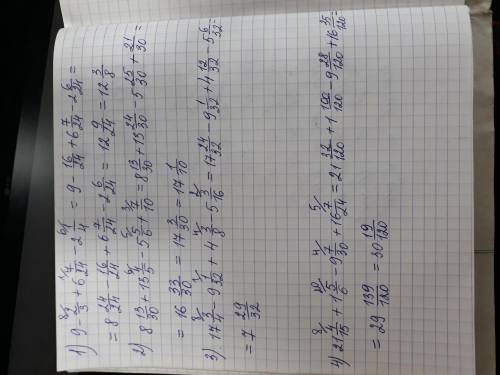 1) 9 - 2/3 + 6 7/24 - 2 1/4 = 9 - 16/24 + 6 7/24 - 2 6/24 =
= 8 24/24 - 16/24 + 6 7/24 - 2 6/24 = 12 9/24 = 12 3/8
2) 8 13/30 + 13 4/5 - 5 5/6 + 7/10 = 8 13/30 + 13 24/30 - 5 25/30 + 21/30 =
= 16 33/30 = 17 3/30 = 17 1/10
3) 17 3/4 - 9 1/32 + 4 3/8 - 5 3/16 = 17 24/32 - 9 1/32 + 4 12/32 - 5 6/32 =
= 7 29/32
4) 21 4/15 + 1 5/6 - 9 7/30 + 16 7/24 = 21 32/120 + 1 100/120 - 9 28/120 + 16 35/120 =
= 29 139/120 = 30 19/120